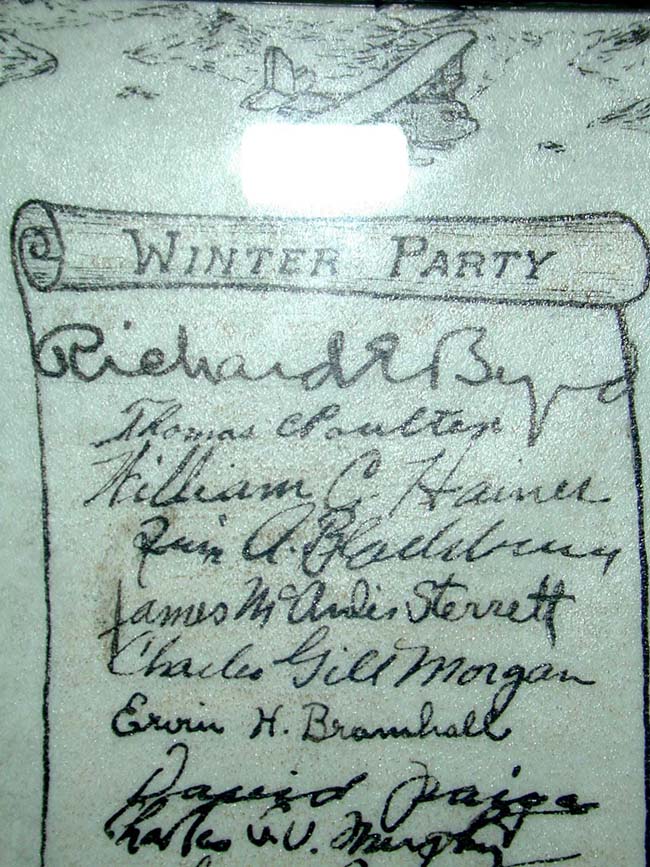 WINTER PARTY
Richard E Byrd
Thomas C Poulter
William C Haines
Quin A. Blackburn
James McArdis Sterrett
Charles Gill Morgan
Ervin H. Bramhall
David Paige
Charles J.V. Murphy